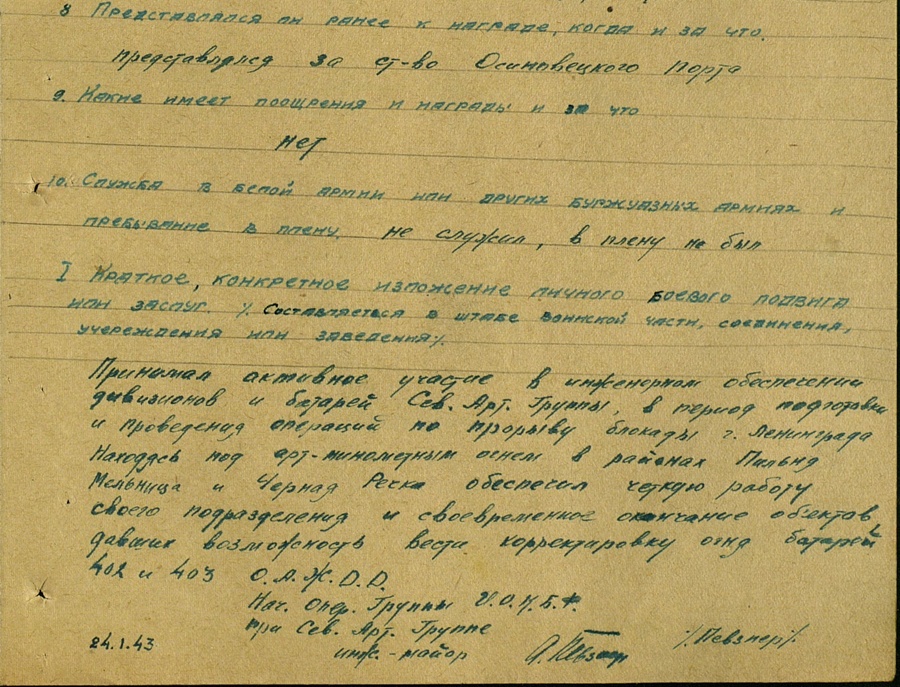 8 Представлялся ли ранее к награде, когда и за что.
представлялся за ст-во Осиновецкого Порта
9. Какие имеет поощрения и награды и за что
нет
10. Служба в белой армии или других буржуазных армиях и
пребывание в плену. не служил, в плену не был
I Краткое, конкретное изложение личного боевого подвига
или заслуг. /. Составляеться в штабе воинской части, соединения,
учереждения или заведения/.
Принимал активное участие в инженорном обеспечении
дивизионов и батарей Сев. Арт. Группы, в период подготовки
и проведения операций по прорыву блокады г. Ленинграда
Находясь под арт-минометным огнем в районах Пильня
Мельница и Черная Речка обеспечил четкую работу
своего подразделения и своевременное окончание объектов
давших возможность вести корректировку огня батарей
402 и 403 О.А.Ж.Д.Д.
Нач. Опер. Группы У.О.У.Б.Ф.
при Сев. Арт. Группе
24.1.43 инж. - майор А. Певзнер /Певзнер/.